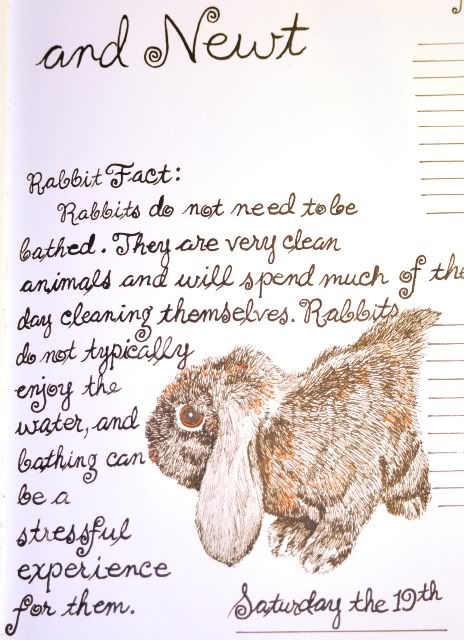 and Newt
Rabbit Fact:
Rabbits do not need to be
bathed. They are very clean
animals and will spend much of the
day cleaning themselves. Rabbits
do not typically
enjoy the
water, and
bathing can
be a
stressful
experience
for them.
Saturday the 19th